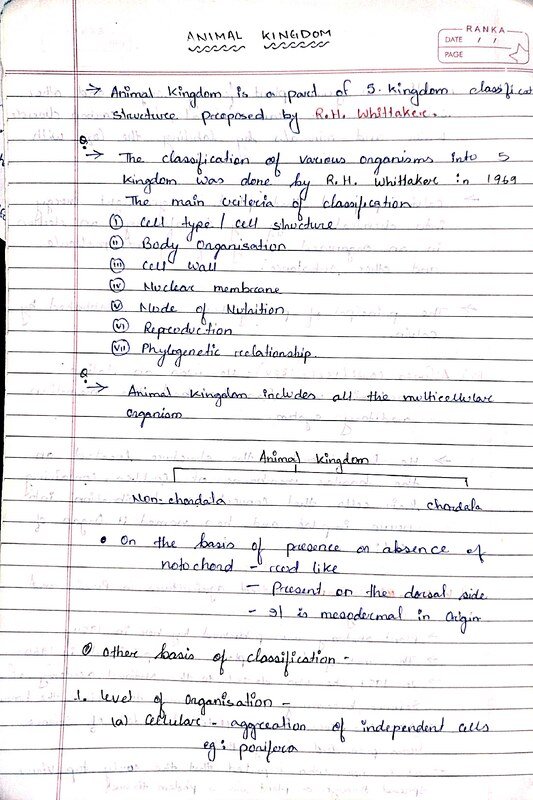 ANIMAL KINGDOM
RANKA
DATE / /
PAGE
→ Animal Kingdom is a part of 5-kingdom classificat
structure proposed by R.H. Whittaker.
Q.
→ The classification of various organisms into 5
kingdom was done by R.H. Whittaker in 1969
The main criteria of classification
(i) Cell type / cell structure
(ii) Body Organisation
(iii) Cell wall
(iv) Nuclear membrane
(v) Mode of Nutrition
(vi) Reproduction
(vii) Phylogenetic relationship.
Q.
→ Animal Kingdom includes all the multicellular
organism
Animal Kingdom
Non-chordata chordata
• On the basis of presence or absence of
notochord - rod like
- Present on the dorsal side
- It is mesodermal in Origin
Other basis of classification -
1. level of organisation -
(a) Cellular - aggreation of independent cells
eg: porifera